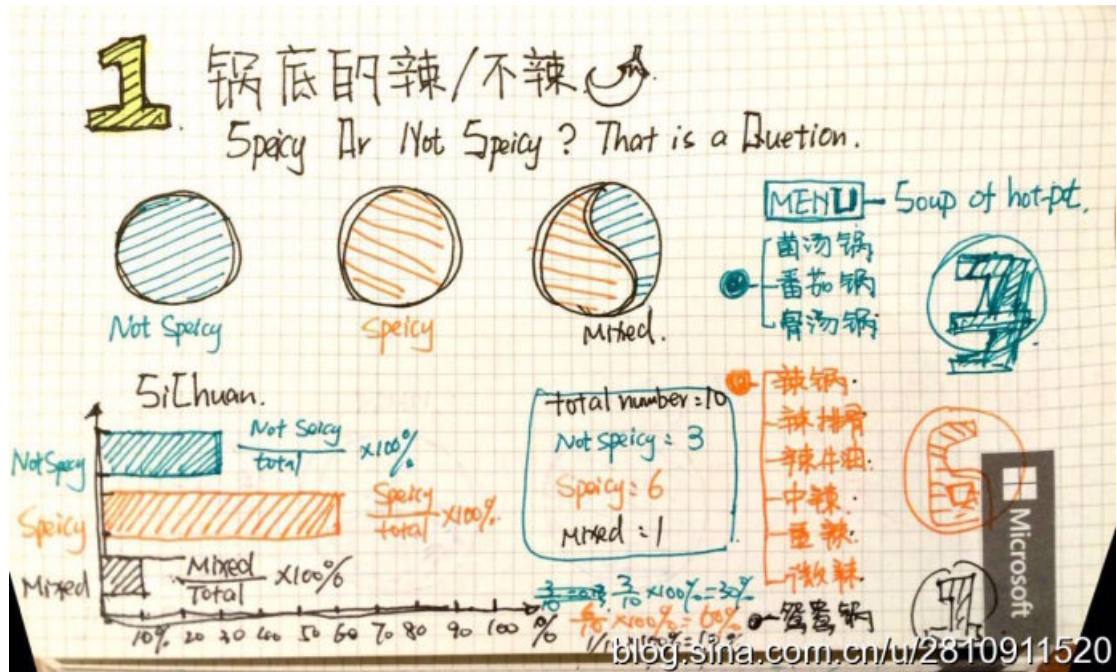 1 锅底的辣/不辣
Speicy Or Not Speicy? That is a Quetion.
Not Speicy
Speicy
Mixed.
MENU - Soup of hot-pot.
菌汤锅
番茄锅
骨汤锅
3
辣锅.
辣排骨
辣牛油.
中辣.
重辣.
微辣.
6
鸳鸯锅
1
SiChuan.
Not Speicy
Not Speicy
total
×100%
Speicy
Speicy
total
×100%
Mixed
Mixed
Total
×100%
10% 20 30 40 50 60 70 80 90 100 %
total number:10
Not speicy: 3
Speicy: 6
Mixed :1
3/10 ×100%=30%
6/10 ×100%=60%
Microsoft
blog.sina.com.cn/u/2810911520